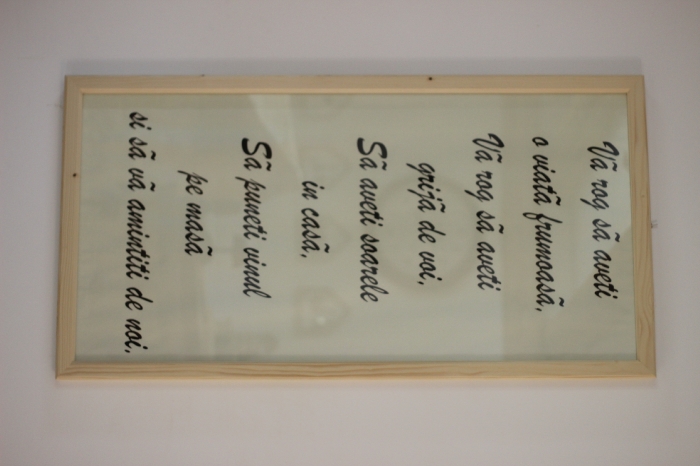 Vă rog să aveti
o viată frumoasă,
Vă rog să aveti
grijă de voi,
Să aveti soarele
in casă,
Să puneti vinul
pe masă
si să vă amintiti de noi,